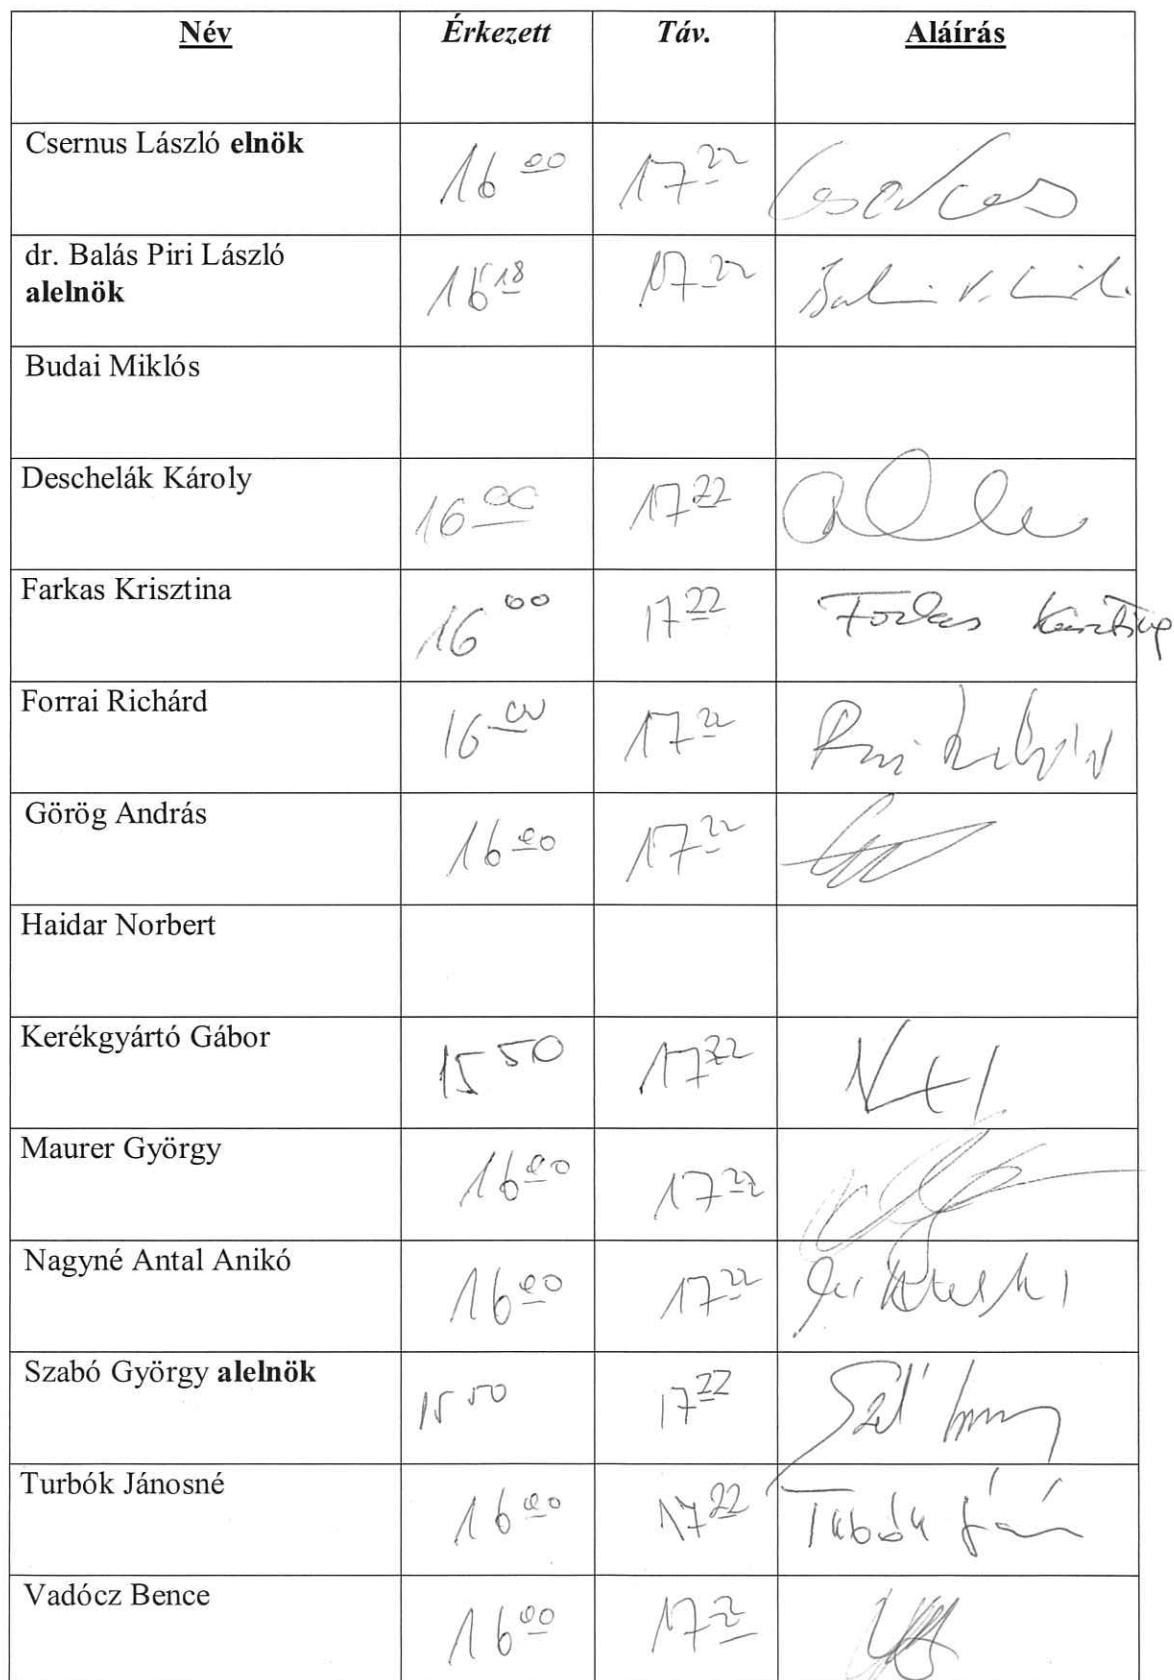 Név Érkezett Táv. Aláírás
Csernus László elnök 16 00 17 22
dr. Balás Piri László
alelnök 16 18 17 22
Budai Miklós
Deschelák Károly 16 00 17 22
Farkas Krisztina 16 00 17 22 Farkas Krisztina
Forrai Richárd 16 00 17 22
Görög András 16 00 17 22
Haidar Norbert
Kerékgyártó Gábor 15 50 17 22
Maurer György 16 00 17 22
Nagyné Antal Anikó 16 00 17 22
Szabó György alelnök 15 50 17 22
Turbók Jánosné 16 00 17 22
Vadócz Bence 16 00 17 22